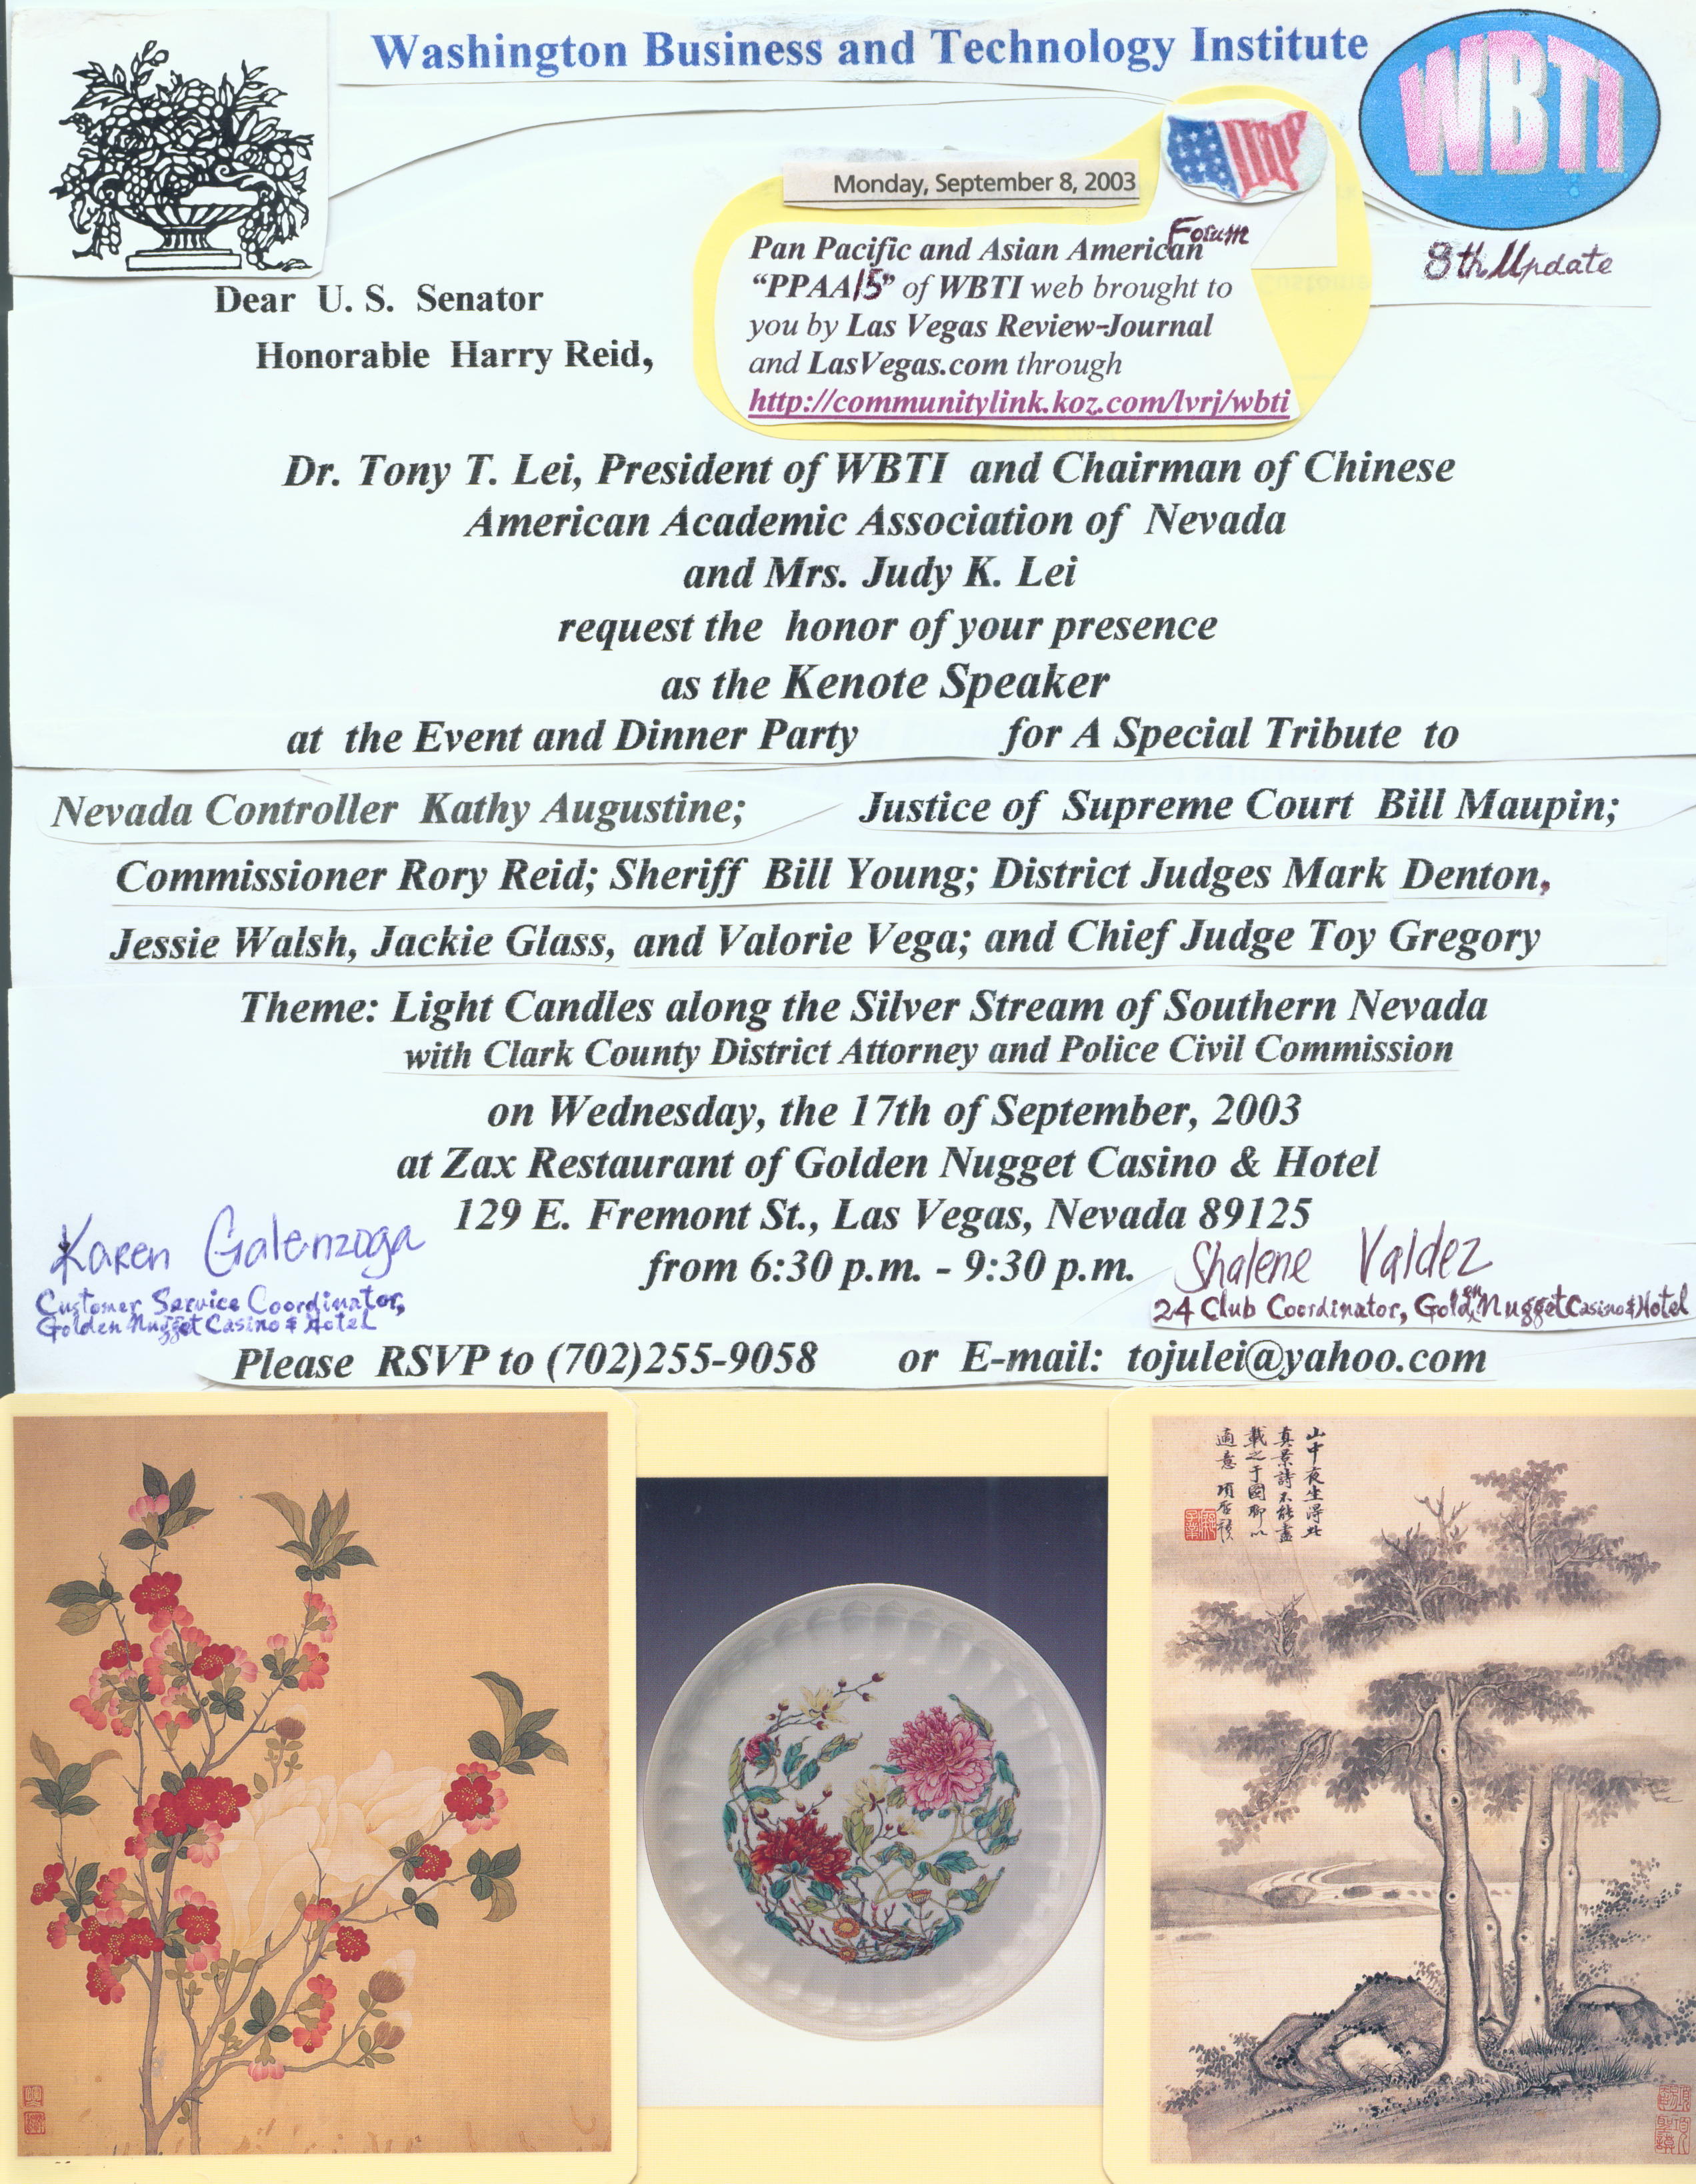 Washington Business and Technology Institute
WBTI
Monday, September 8, 2003
8th Update
Forum
Pan Pacific and Asian American
“PPAA15” of WBTI web brought to
you by Las Vegas Review-Journal
and LasVegas.com through
http://communitylink.koz.com/lvrj/wbti
Dear U. S. Senator
Honorable Harry Reid,
Dr. Tony T. Lei, President of WBTI and Chairman of Chinese
American Academic Association of Nevada
and Mrs. Judy K. Lei
request the honor of your presence
as the Kenote Speaker
at the Event and Dinner Party for A Special Tribute to
Nevada Controller Kathy Augustine; Justice of Supreme Court Bill Maupin;
Commissioner Rory Reid; Sheriff Bill Young; District Judges Mark Denton,
Jessie Walsh, Jackie Glass, and Valorie Vega; and Chief Judge Toy Gregory
Theme: Light Candles along the Silver Stream of Southern Nevada
with Clark County District Attorney and Police Civil Commission
on Wednesday, the 17th of September, 2003
at Zax Restaurant of Golden Nugget Casino & Hotel
129 E. Fremont St., Las Vegas, Nevada 89125
from 6:30 p.m. - 9:30 p.m.
Karen Galenzoga
Customer Service Coordinator,
Golden Nugget Casino & Hotel
Shalene Valdez
24 Club Coordinator, Golden Nugget Casino & Hotel
Please RSVP to (702)255-9058 or E-mail: tojulei@yahoo.com
山中夜坐得此
真景詩不能盡
載之于圖聊以
適意 項